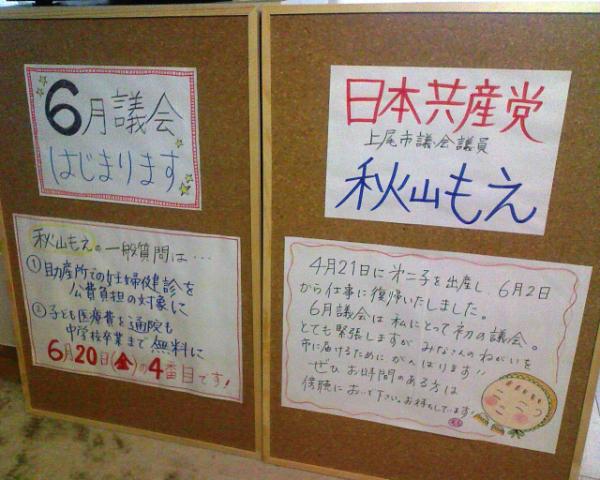 6月議会
はじまります
秋山もえの一般質問は…
①助産所での妊婦健診を
公費負担の対象に
②子ども医療費を通院も
中学校卒業まで無料に
6月20日(金)の4番目です!
日本共産党
上尾市議会議員
秋山もえ
4月21日に第二子を出産し 6月2日
から仕事に復帰いたしました。
6月議会は私にとって初の議会。
とても緊張しますが みなさんのねがいを
市に届けるために がんばります!!
ぜひ お時間のある方は
傍聴においで下さい。お待ちしています!